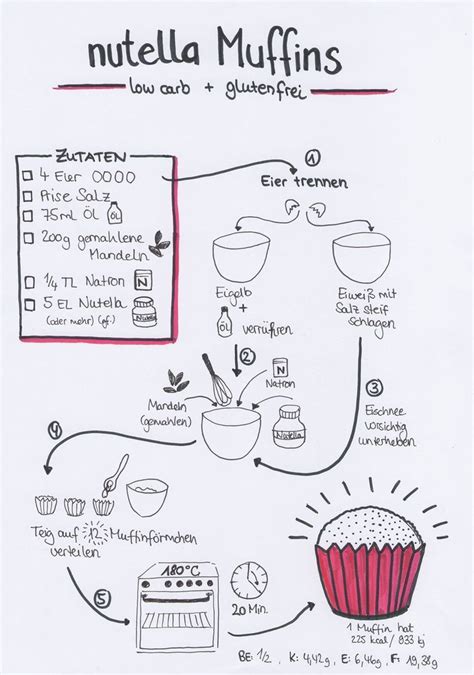 nutella Muffins
low carb + glutenfrei
ZUTATEN
4 Eier 0000
Prise Salz
75ml Öl ÖL
200g gemahlene
Mandeln
1/4 TL Natron N
5 EL Nutella
(oder mehr) (gf.)
1
Eier trennen
Eigelb
+
ÖL verrühren
Eiweiß mit
Salz steif
schlagen
2
N
Natron
Mandeln
(gemahlen)
Nutella
3
Eischnee
vorsichtig
unterheben
4
Teig auf 12 Muffinförmchen
verteilen
5
180°C
20 Min.
1 Muffin hat
225 kcal / 933 kj
BE: 1/2, K: 4,42g, E: 6,46g, F: 19,38g